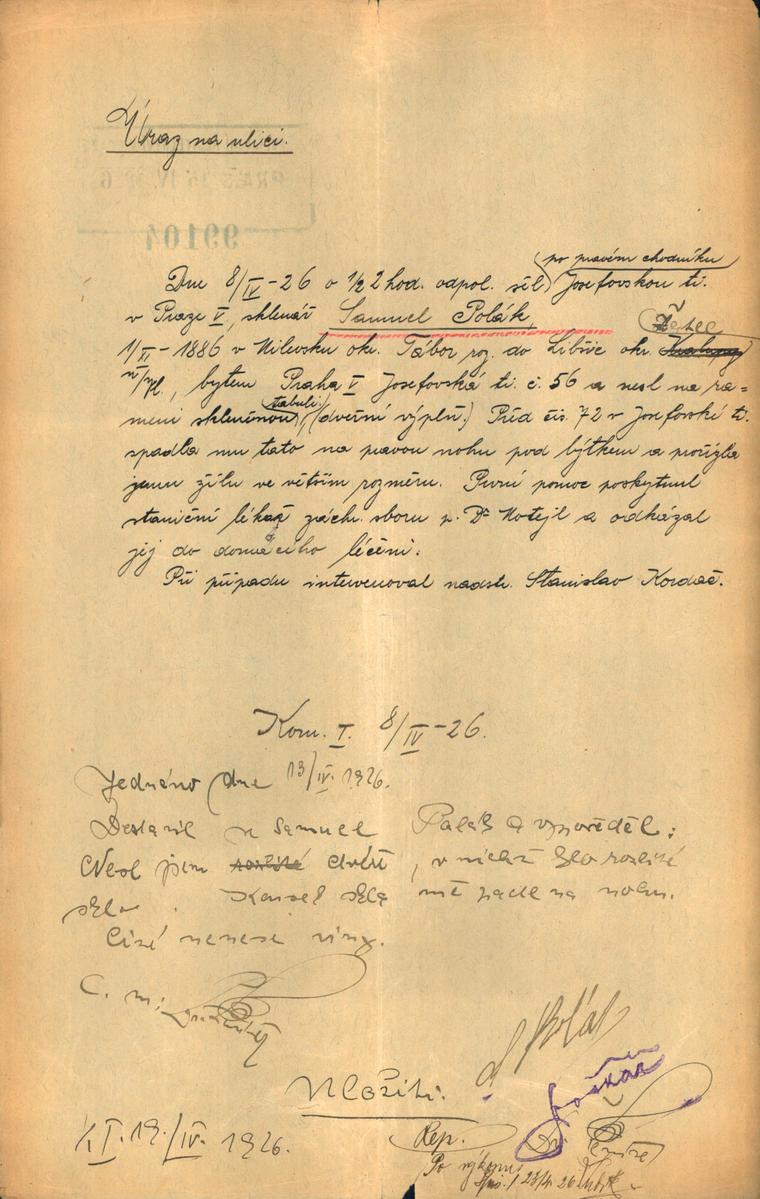 Úraz na ulici.
99104
po pravém chodníku
Dne 8/IV-26 o 1/2 2 hod. odpol. šel Josefovskou tř.
v Praze V, sklenář Samuel Polák
Žatec
1/II-1886 v Milevsku okr. Tábor roj. do Liběšic okr.
n/Vl., bytem Praha V Josefovská tř. č. 56 a nesl na ra=
tabuli
meni skleněnou, (dveřní výplň.) Před čís. 72 v Josefovské tř.
spadla mu tato na pravou nohu pod lýtkem a pořízla
jemu žílu ve větším rozměru. První pomoc poskytnul
staniční lékař záchr. sboru p. Dr Motejl a odkázal
jej do domácího léčení.
Při případu intervenoval nadstr. Stanislav Kordač.
Kom. I. 8/IV-26.
Jednáno dne 13/IV. 1926.
Dostavil se Samuel Polák a vypověděl:
Nesl jsem rozbité dveře, v nichž bylo rozbité
sklo. Kousek skla mě padl na nohu.
Cizí nenese viny.
C. m.:
Polák
Uložiti.
1/I. 19./IV. 1926.
Rep.
Po výkonu
23/4. 26